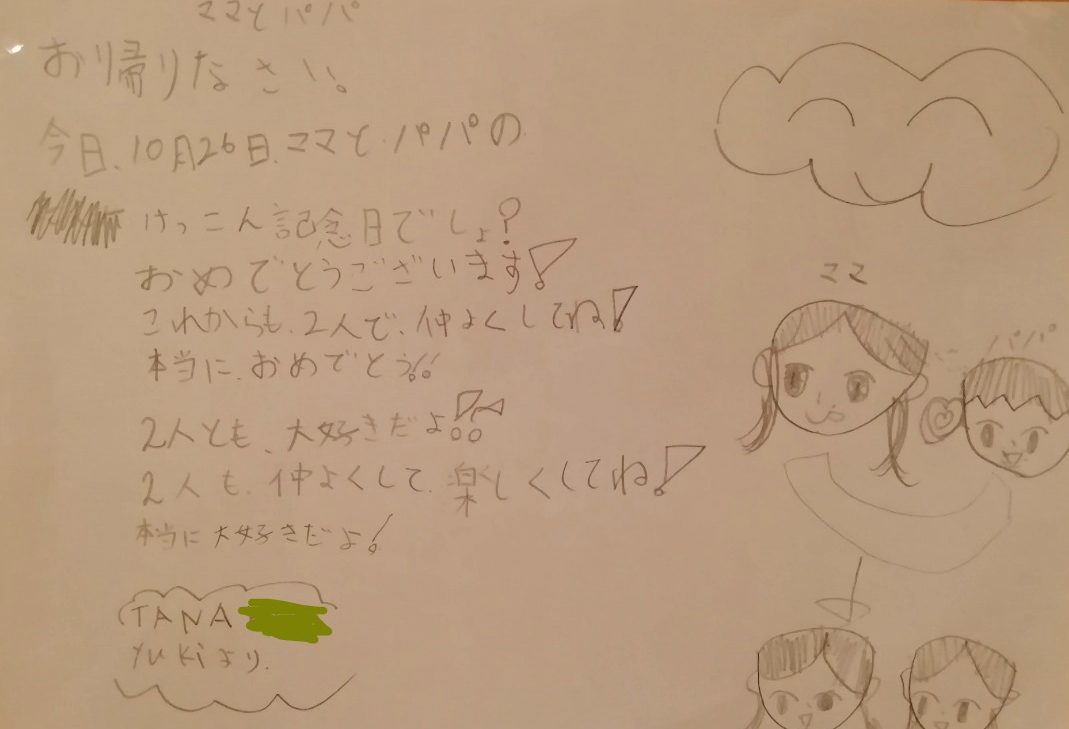 ママとパパ
お帰りなさい。
今日、10月26日、ママとパパの
けっこん記念日でしょ?
おめでとうございます!
これからも、2人で、仲よくしてね!
本当に、おめでとう!!
2人とも、大好きだよ!!
2人も、仲よくして、楽しくしてね!
本当に大好きだよ!
TANA
YUKiより。
ママ
パパ